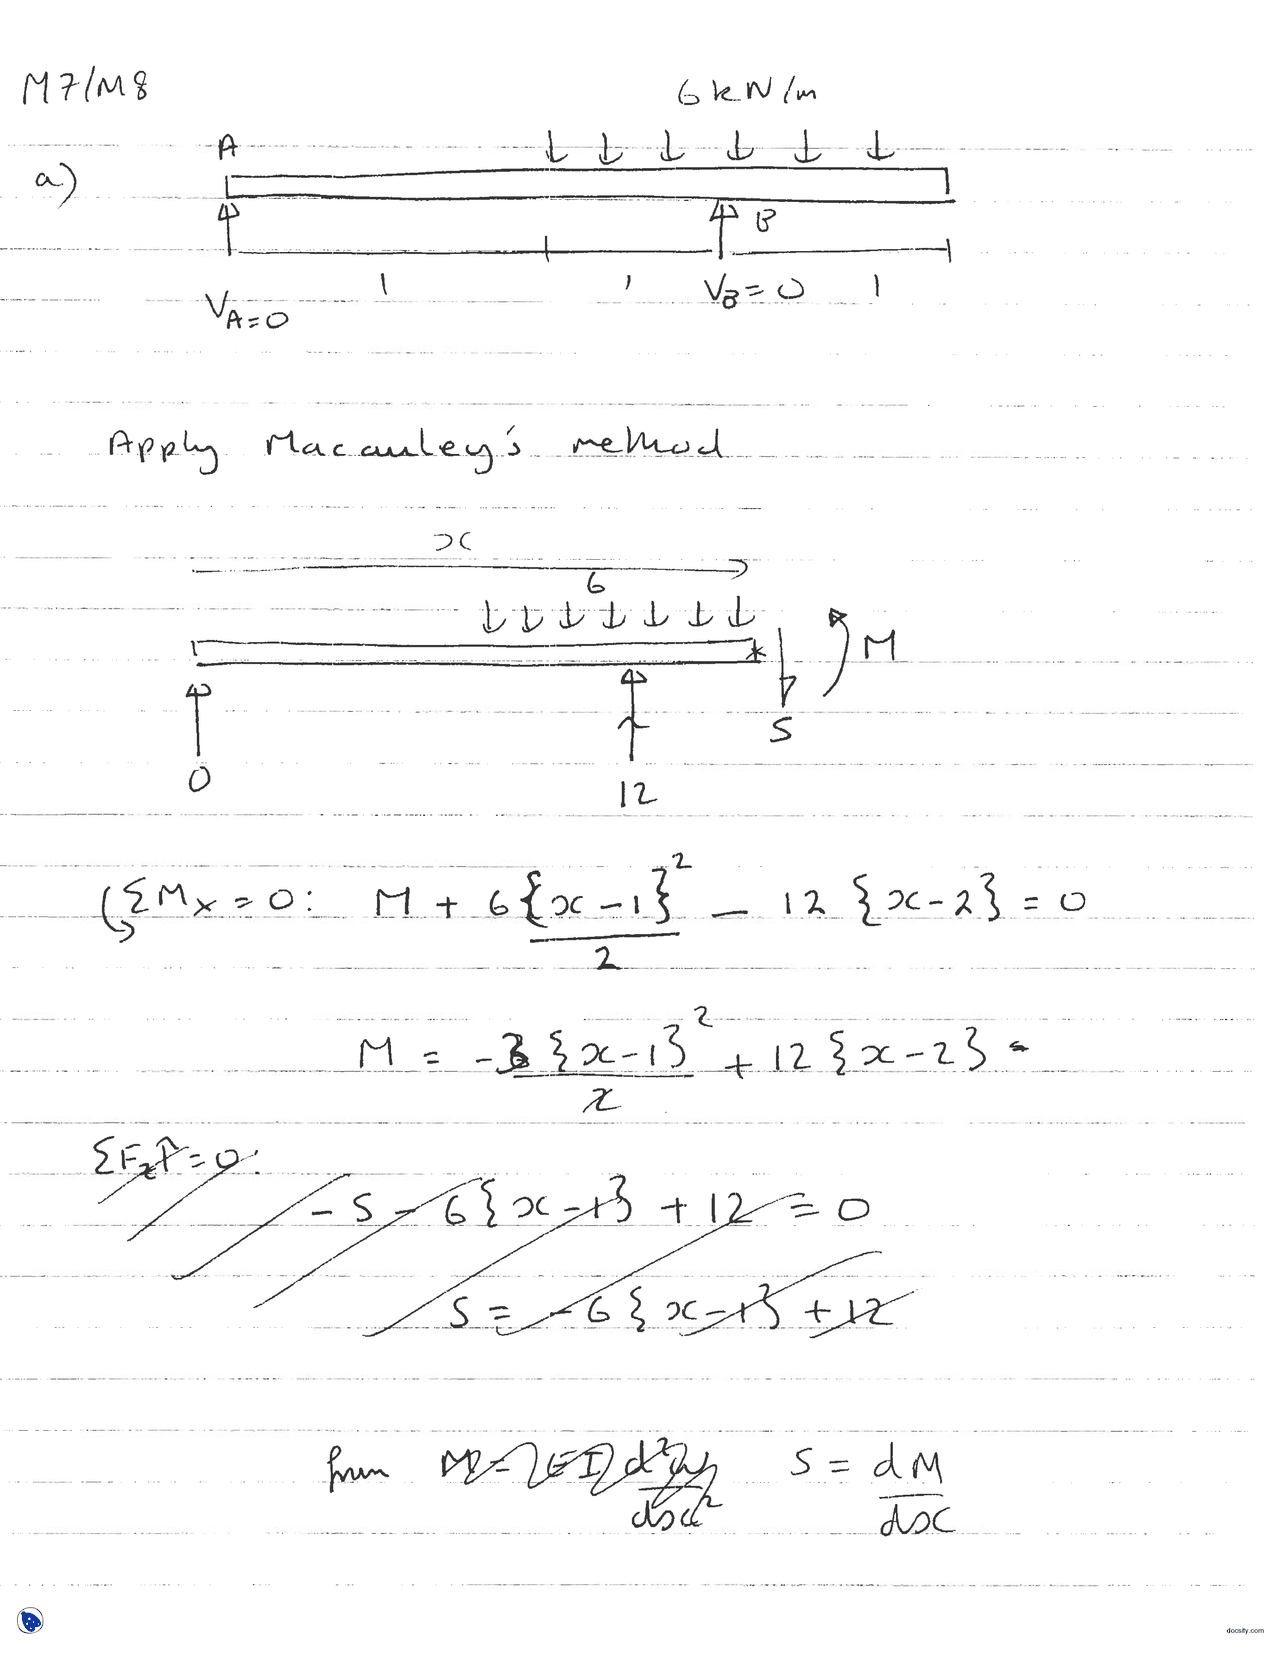 M7/M8
6 kN/m
A
a)
B
1 1 1
V_A = 0
V_B = 0
Apply Macauley's method
x
6
M
S
0
12
ΣM_x = 0: M + 6{x-1}²/2 - 12 {x-2} = 0
M = -3 {x-1}²/2 + 12 {x-2}
ΣF_z↑ = 0:
-S - 6{x-1} + 12 = 0
S = -6{x-1} + 12
from M = -EI d²w/dx² S = dM/dx
docsity.com